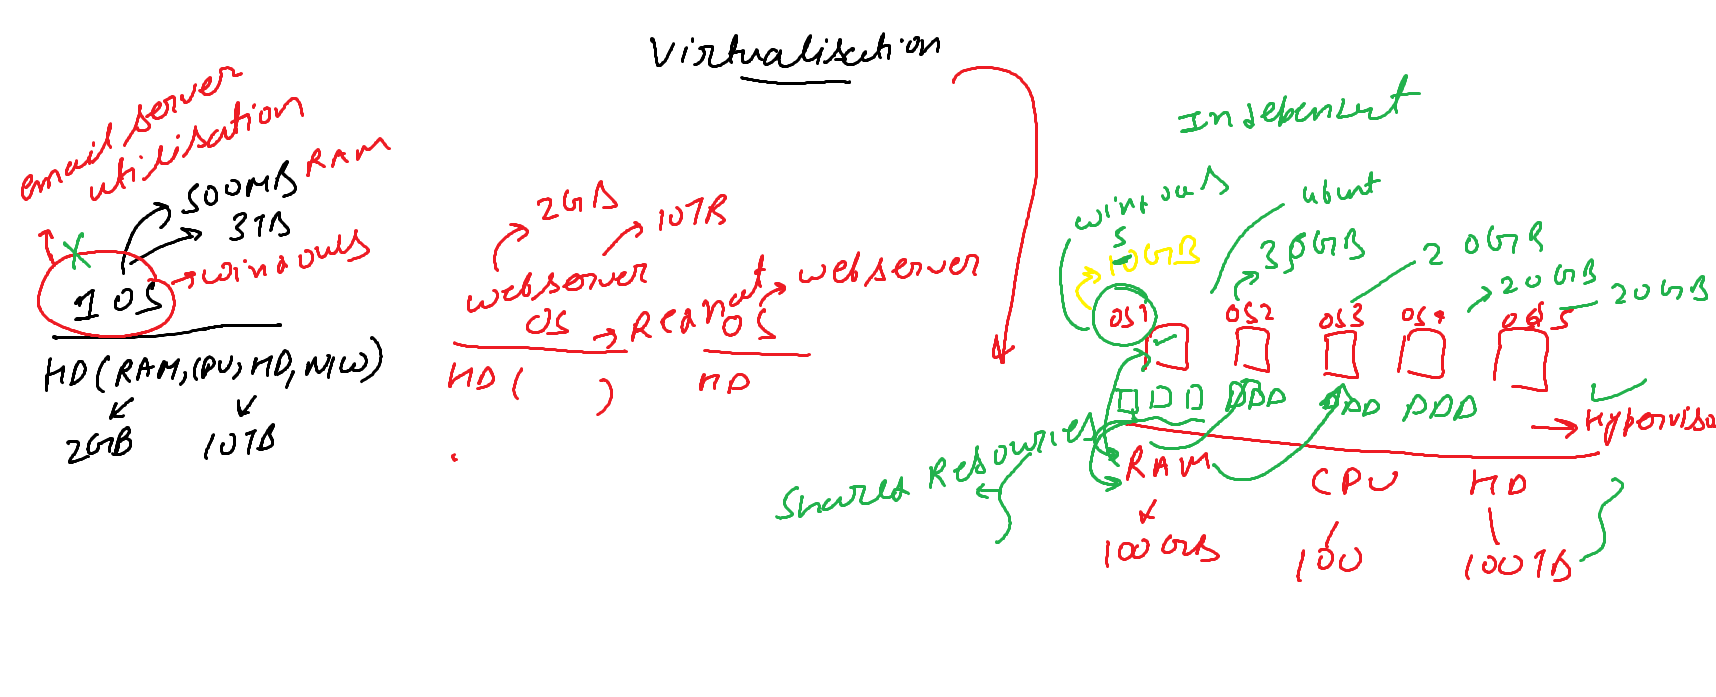 Virtualisation
email server
utilisation
500MB RAM
3TB
1 OS
windows
HD (RAM, CPU, HD, N/W)
2GB
10TB
2GB
10TB
webserver
OS
HD ( )
webserver
OS
HD
Independent
windows
ubunt
5
10GB
30GB
20GB
20GB
20GB
OS1
OS2
OS3
OS4
OS5
Hyperviso
Shared Resources
RAM
CPU
HD
100GB
100
100TB